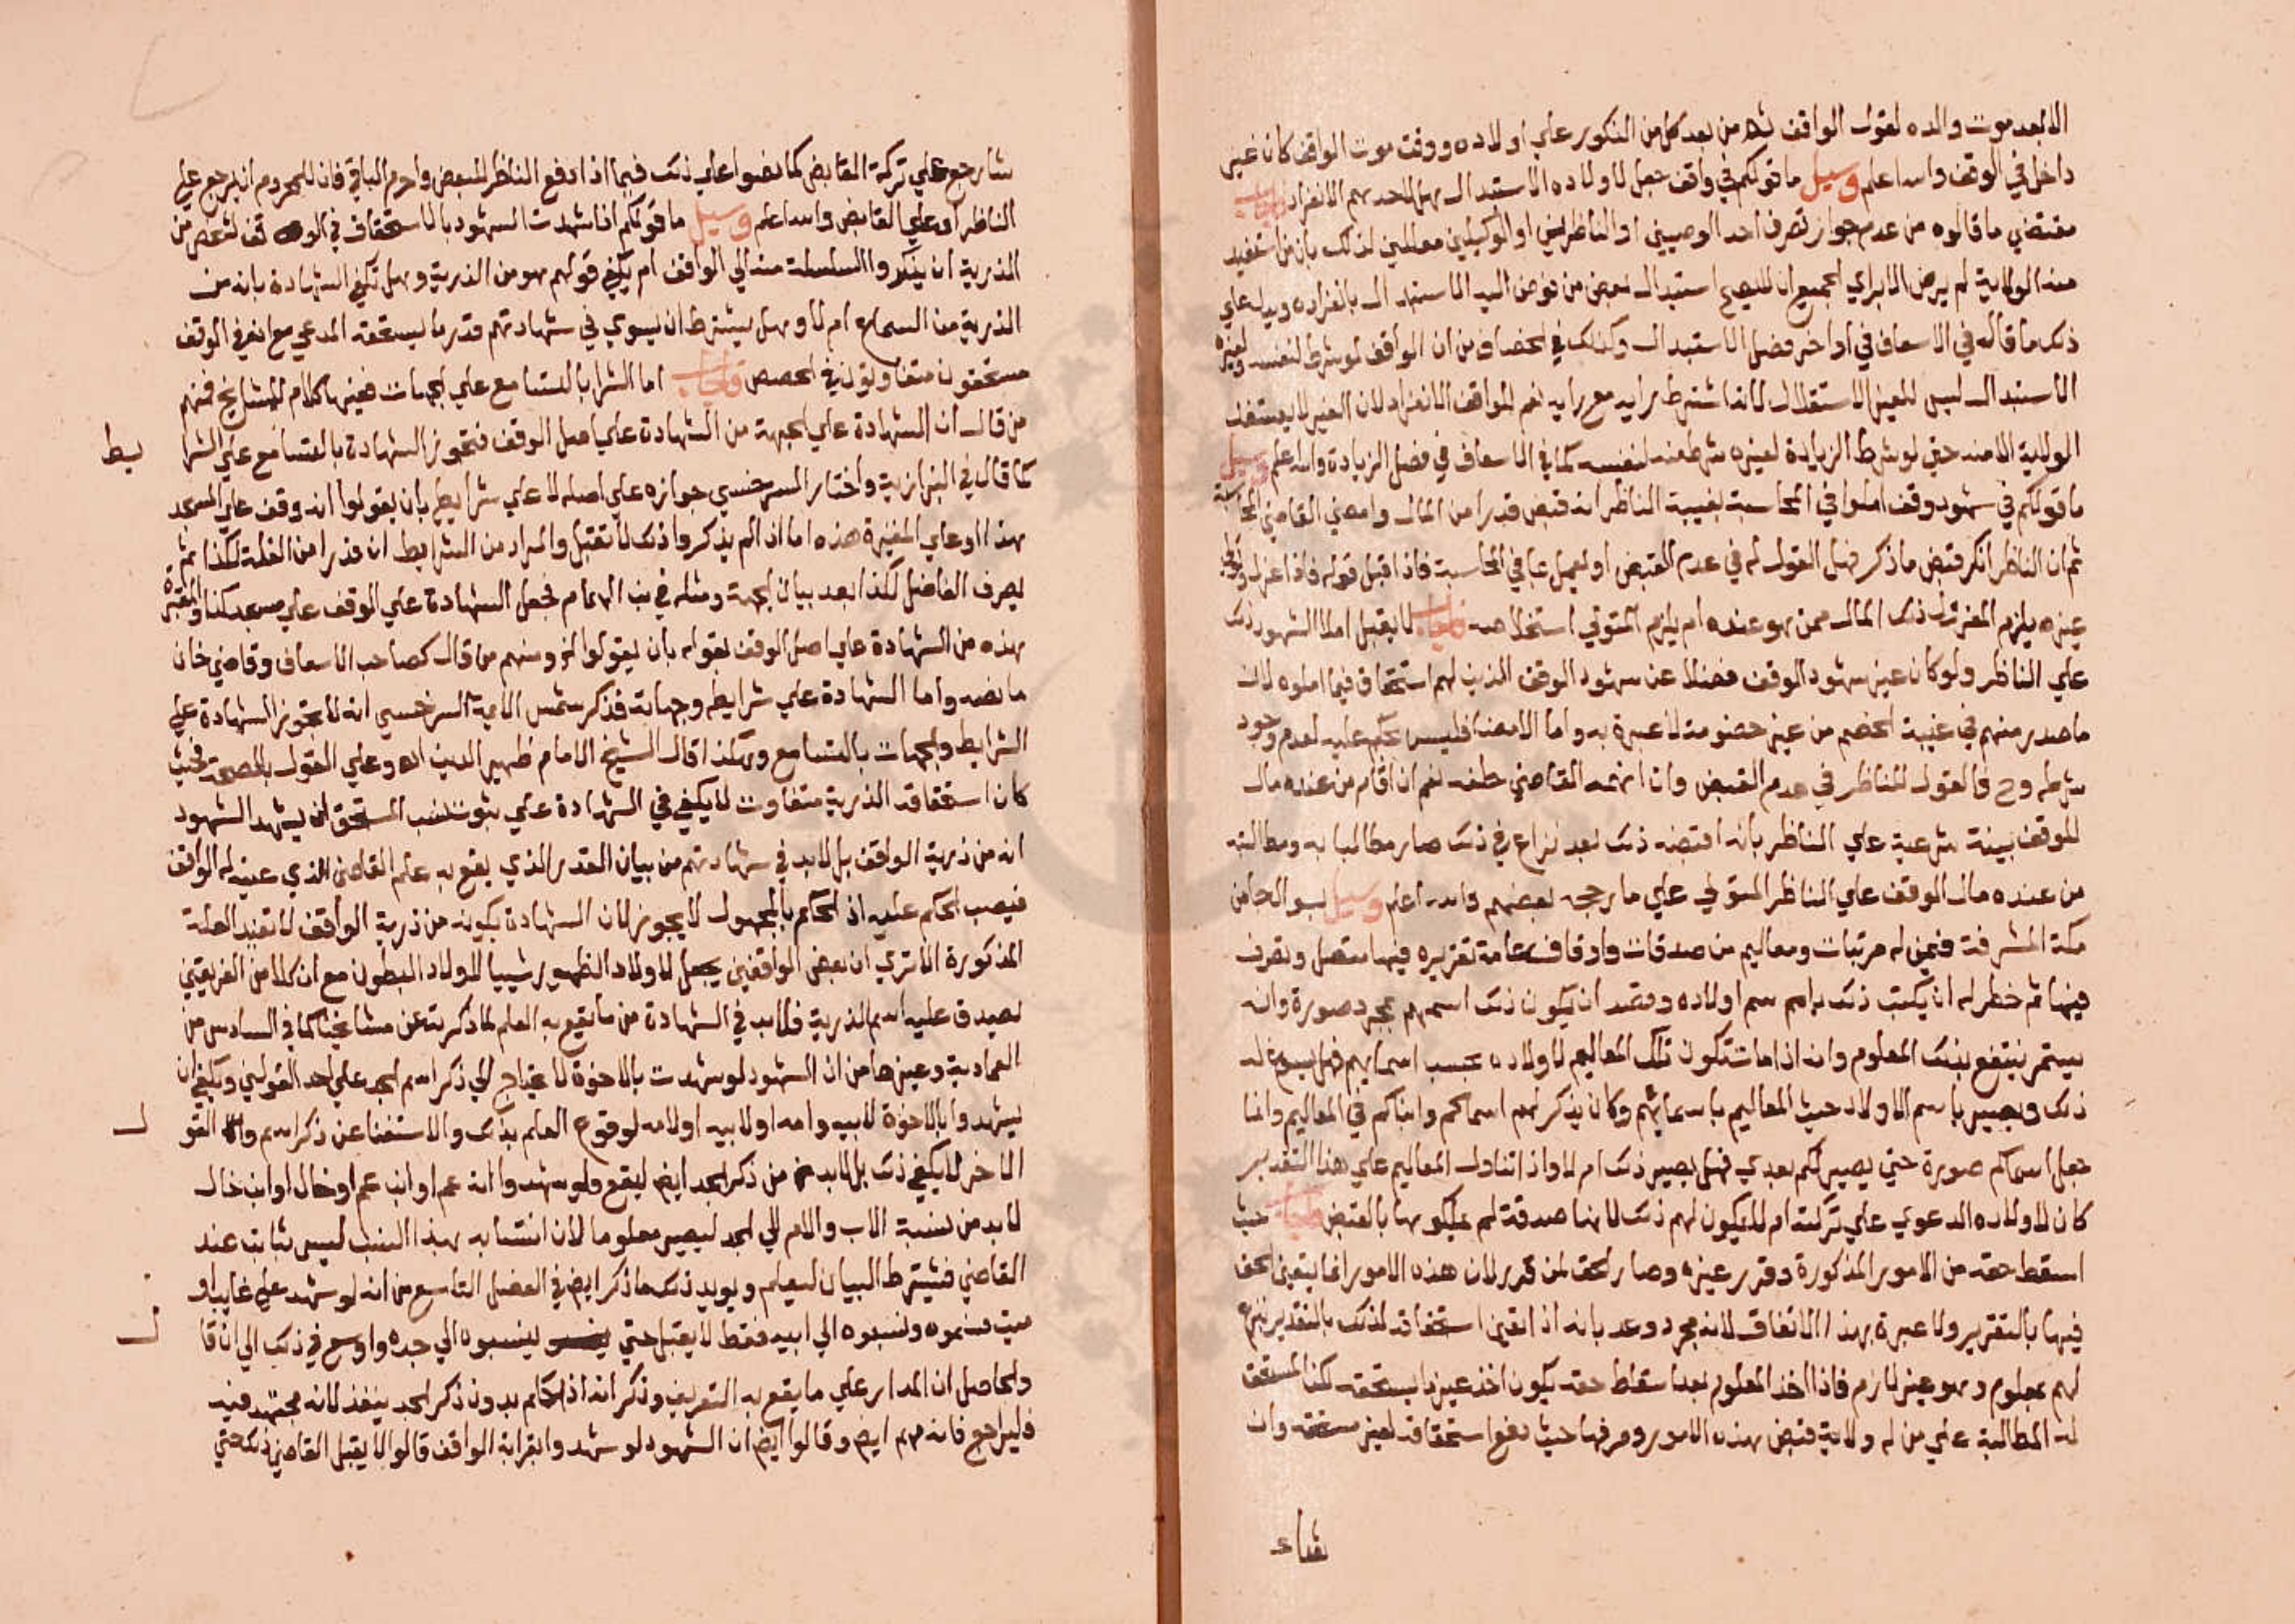 الا بعد موت والده لقول الواقف ثم من بعد كل من الذكور علي اولاده ووقت موت الواقف كان غير
داخل في الوقف والله اعلم وسيل ما قولكم في واقف جعل لاولاده الاستبدال هل لاحدهم الانفراد فاجاب
مقتضي ما قالوه من عدم جواز تصرف احد الوصيين او الناظرين او الوكيلين معللين لذلك بان من استفيد
منه الولاية لم يرض الا براي الجميع ان لا يصح استبدال بعض من فوض اليه الاستبدال بانفراده ويدل علي
ذلك ما قاله في الاسعاف في اواخر فصل الاستبدال وكذلك في الخصاف من ان الواقف لو شرط لنفسه ولغيره
الاستبدال ليس للغير الاستقلال لانه اشترط رايه مع رايه نعم للواقف الانفراد لان الغير لا يستفيد
الولاية الا منه حتي لو شرط الزيادة لغيره شرط منه لنفسه كما في الاسعاف في فصل الزيادة والله اعلم وسيل
ما قولكم في شهود وقف املوا في المحاسبة بغيبة الناظر انه قبض قدرا من المال وامضي القاضي المحاسبة
ثم ان الناظر انكر قبض ما ذكر فهل القول له في عدم القبض او يعمل بما في المحاسبة فاذا قبل قوله فاذا عزل وتولي
غيره يلزم المعزول ذلك المال ممن هو عنده ام يلزم المتولي استخلاصه فاجاب لا يقبل املا الشهود ذلك
علي الناظر ولو كان غير شهود الوقف فضلا عن شهود الوقف الذين لهم استحقاق فيما املوه لان
ما صدر منهم في غيبة الخصم من غير خصومة لا عبرة به واما الامضا فليس بحكم عليه لعدم وجود
شرطه وح فالقول للناظر في عدم القبض وان اتهمه القاضي حلفه نعم ان اقام من عنده مال
للوقف بينة شرعية علي الناظر بانه اقبضه ذلك بعد نزاع في ذلك صار مطالبا به ومطالبته
من عنده مال الوقف علي الناظر المتولي علي ما رجحه بعضهم والله اعلم وسيل بسوال جا من
مكة المشرفة فيمن له مرتبات ومعاليم من صدقات واوقاف عامة تقريره فيها متصل وتصرف
فيها ثم خطر له ان يكتب ذلك باسم اولاده وقصد ان يكون ذلك اسمهم مجرد صورة وانه
يستمر ينتفع بذلك المعلوم وانه اذا مات تكون تلك المعاليم لاولاده بحسب اسمايهم فهل يسوغ له
ذلك ويصير باسم الاولاد حيث المعاليم باسمائهم وكان يذكر لهم اسماكم وابناكم في المعاليم وانما
جعل اسماكم صورة حتي يصير لكم بعدي فهل يصير ذلك ام لا واذا تناول المعاليم علي هذا التقدير
كان لاولاده الدعوي علي تركته ام لا يكون لهم ذلك لانها صدقة لم يملكوها بالقبض فاجاب حيث
اسقط حقه من الامور المذكورة وقرر غيره وصار الحق لمن قرر لان هذه الامور انما يتعين الحق
فيها بالتقرير ولا عبرة بهذا الاتفاق لانه مجرد وعد بانه اذا تعين استحقاقه لذلك بالتقدير يتبرع
لهم بمعلوم وهو غير لازم فاذا اخذ المعلوم بعد اسقاط حقه يكون اخذ غير ما يستحقه لكن المستحق
له المطالبة علي من له ولاية قبض هذه الامور وصرفها حيث دفع استحقاقه لغير مستحقه وان
شا رجع علي تركة القابض كما نصوا علي ذلك فيما اذا دفع الناظر للبعض واحرم الباقي فان للمحروم ان يرجع علي
الناظر او علي القابض والله اعلم وسيل ما قولكم اذا شهدت الشهود بالاستحقاق في الوقف لشخص من
الذرية ان يذكروا السلسلة منه الي الواقف ام يكفي قولهم هو من الذرية وهل تكفي الشهادة بانه من
الذرية من السماع ام لا وهل يشترط ان يسوي في شهادتهم قدر ما يستحقه المدعي مع ان في الوقف
مستحقون متفاوتون في الحصص فاجاب اما الشرا بالتسامع علي الجهات ففيها كلام للمشايخ فمنهم
من قال ان الشهادة علي الجهة من الشهادة علي اصل الوقف فتجوز الشهادة بالتسامع علي الشرا
يط
كما قال في البزازية واختار السرخسي جوازه علي اصله لا علي شرايطه بان يقولوا انه وقف علي المسجد
هذا او علي المقبرة هذه اما اذا لم يذكروا ذلك لا تقبل والمراد من الشرايط ان قدرا من الغلة لكذا ثم
يصرف الفاضل لكذا بعد بيان الجهة ومثله في بن الهمام فجعل الشهادة علي الوقف علي مسجد كذا والمقبرة
هذه من الشهادة علي اصل الوقف بقوله بان يقولوا الخ ومنهم من قال كصاحب الاسعاف وقاضي خان
ما نصه واما الشهادة علي شرايطه وجهاته فذكر شمس الايمة السرخسي انه لا تجوز الشهادة علي
الشرايط والجهات بالتسامع وهكذا قال الشيخ الامام ظهير الدين اه وعلي القول بالصحة فحيث
كان استحقاق الذرية متفاوت لا يكفي في الشهادة علي ثبوت نسب المستحق ان يشهد الشهود
انه من ذرية الواقف بل لابد في شهادتهم من بيان القدر الذي يقع به علم القاضي الذي عينه له الواقف
فيصب الحكم عليه اذ الحكم بالمجهول لا يجوز لان الشهادة بكونه من ذرية الواقف لا تفيد العلة
المذكورة الا تري ان بعض الواقفين يجعل لاولاد الظهور شييا لاولاد البطون مع ان كلا من الفريقين
يصدق عليه اسم الذرية فلابد في الشهادة من ما يقع به العلم لما ذكرته عن مشايخنا كما في السادس من
العمادية وغيرها من ان الشهود لو شهدت بالاخوة لا يحتاج الي ذكر اسم الجد علي احد القولين ويكفي ان
يشهدوا بالاخوة لابيه وامه او لابيه او لامه لوقوع العلم بذلك والاستغنا عن ذكر اسم والقو
ل
الاخر لا يكفي ذلك بل لابد من ذكر الجد ايض ليقع ولو شهدوا انه عم او ابن عم او خال او ابن خال
لابد من نسبة الاب والام الي الجد ليصير معلوما لان انتسابه بهذا النسب ليس بثابت عند
القاضي فيشترط البيان ليعلم ويويد ذلك ما ذكر ايض في الفصل التاسع من انه لو شهد علي غايب او
ميت سموه ونسبوه الي ابيه فقط لا يقبل حتي ينسبوه الي جده واوسع في ذلك الي ان قا
ل
والحاصل ان المدار علي ما يقع به التعريف وذكر انه اذا حكم بدون ذكر الجد ينفذ لانه مجتهد فيه
فليراجع فانه مهم ايض وقالوا ايض ان الشهود لو شهدوا بقرابة الواقف قالوا لا يقبل القاضي ذلك حتي